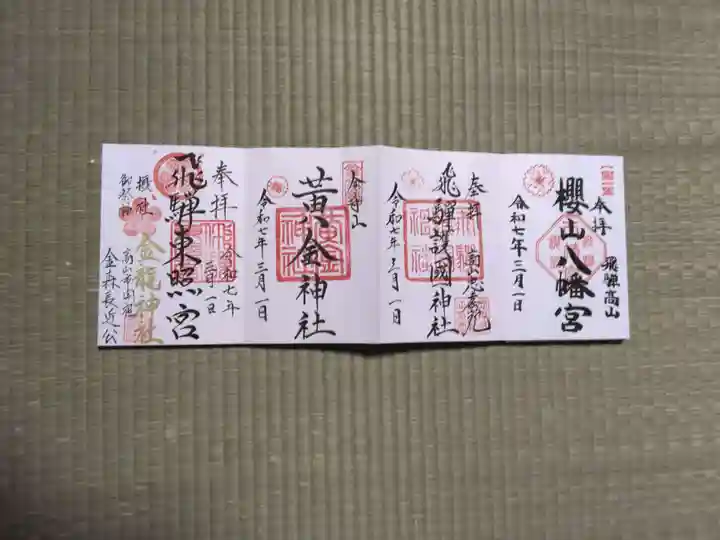 奉拝
飛騨高山
櫻山八幡宮
令和七年三月一日
奉拝
飛騨護國神社
令和七年三月一日
黄金神社
黄金神社
令和七年三月一日
奉拝
令和七年
三月一日
飛騨東照宮
摂社
御祭神
金龍神社
金森長近公